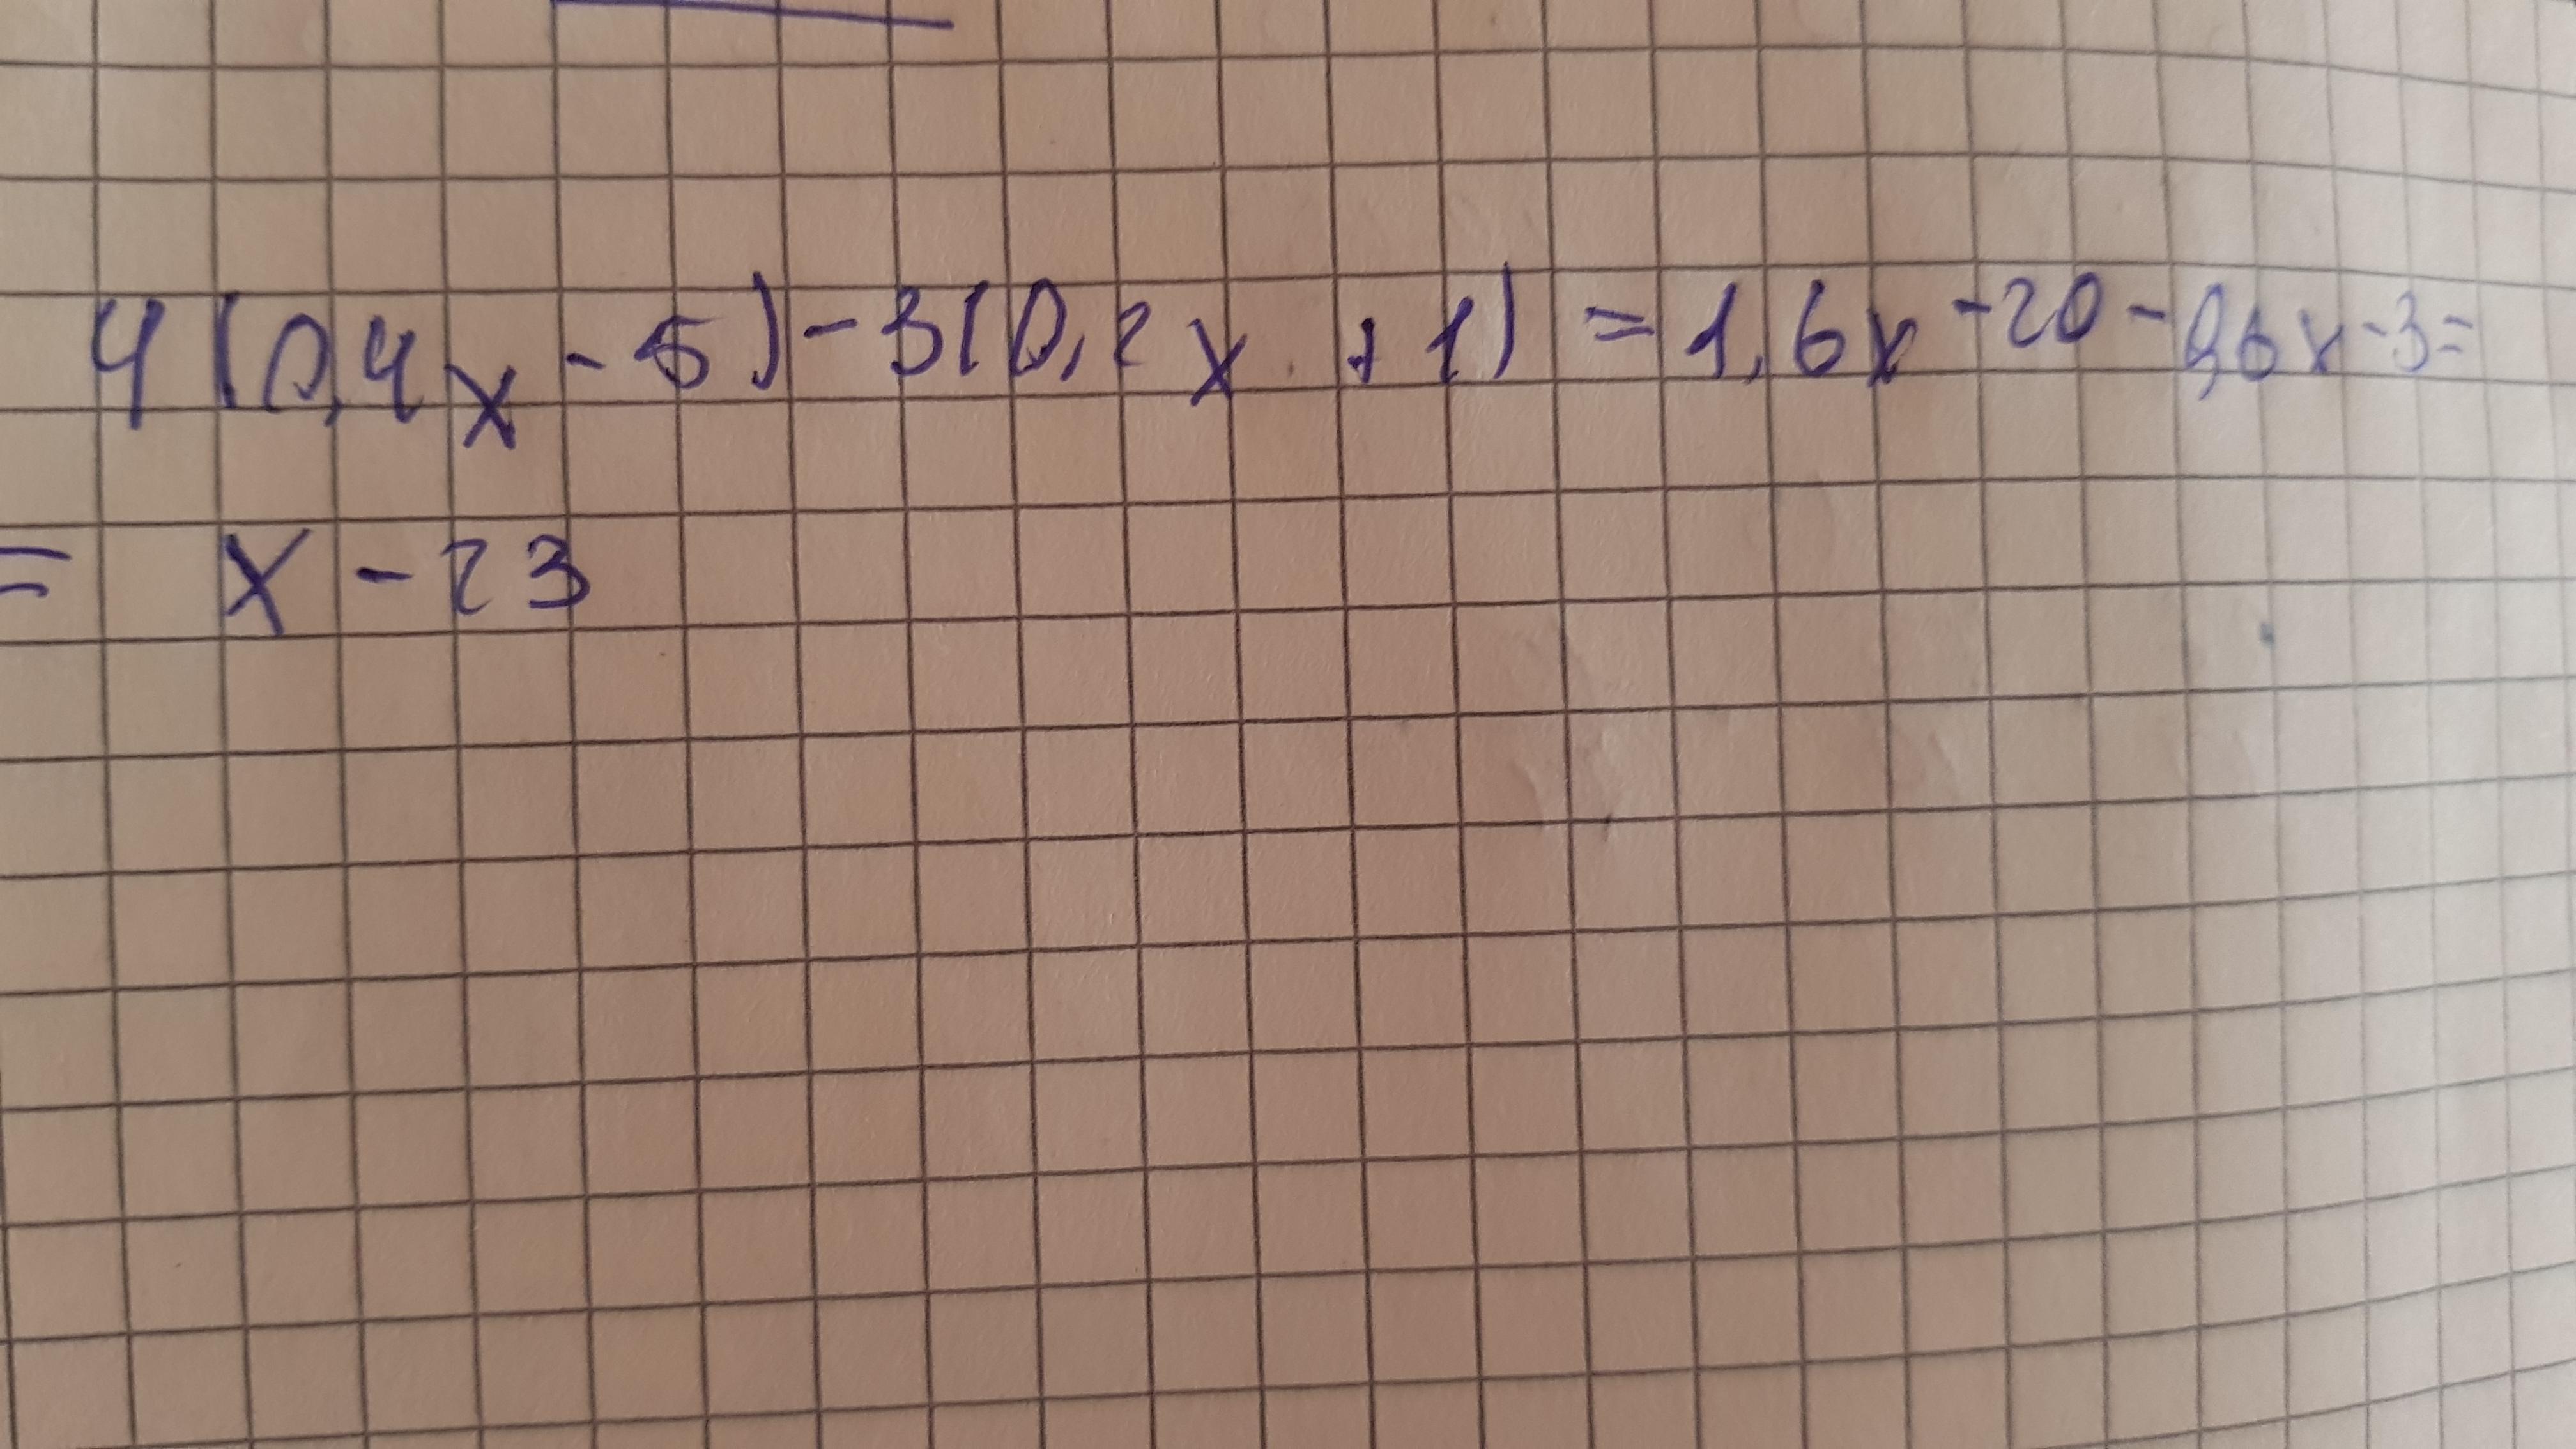 4(0,4x-5)-3(0,2x+1)=1,6x-20-0,6x-3=
= x-23